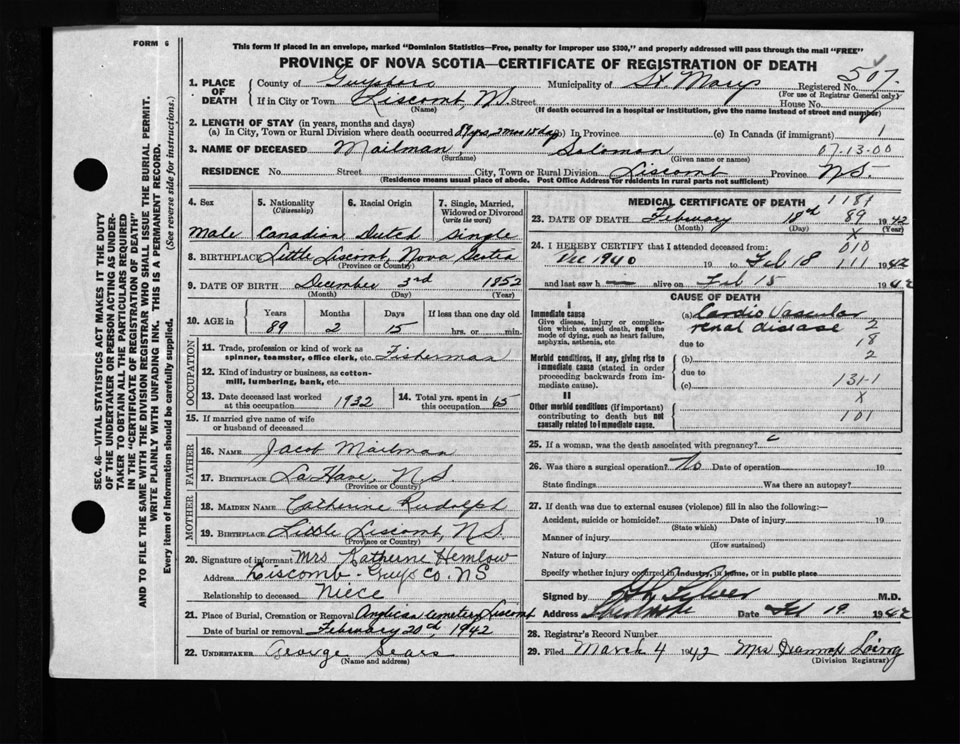 FORM 6
This form if placed in an envelope, marked "Dominion Statistics—Free, penalty for improper use $300," and properly addressed will pass through the mail "FREE"
PROVINCE OF NOVA SCOTIA—CERTIFICATE OF REGISTRATION OF DEATH
SEC. 46—VITAL STATISTICS ACT MAKES IT THE DUTY
OF THE UNDERTAKER OR PERSON ACTING AS UNDER-
TAKER TO OBTAIN ALL THE PARTICULARS REQUIRED
IN THE "CERTIFICATE OF REGISTRATION OF DEATH"
AND TO FILE THE SAME WITH THE DIVISION REGISTRAR WHO SHALL ISSUE THE BURIAL PERMIT.
WRITE PLAINLY WITH UNFADING INK. THIS IS A PERMANENT RECORD.
Every item of information should be carefully supplied. (See reverse side for instructions.)
1. PLACE OF DEATH County of Guysboro Municipality of St. Marys Registered No. 507
(For use of Registrar General only)
If in City or Town Liscomb, N.S. Street House No.
(Name) (If death occurred in a hospital or institution, give the name instead of street and number)
2. LENGTH OF STAY (in years, months and days)
(a) In City, Town or Rural Division where death occurred 89 yrs, 2 mos 15 days (b) In Province (c) In Canada (if immigrant) 1
3. NAME OF DECEASED Mailman, Solomon 07-13-00
(Surname) (Given name or names)
RESIDENCE No. Street City, Town or Rural Division Liscomb Province N.S.
(Residence means usual place of abode. Post Office Address for residents in rural parts not sufficient)
4. Sex 5. Nationality (Citizenship) 6. Racial Origin 7. Single, Married, Widowed or Divorced (write the word)
Male Canadian Dutch Single
8. BIRTHPLACE Little Liscomb, Nova Scotia
(Province or Country)
9. DATE OF BIRTH December 3rd 1852
(Month) (Day) (Year)
10. AGE in Years Months Days If less than one day old
89 2 15 hrs. or min.
OCCUPATION
11. Trade, profession or kind of work as spinner, teamster, office clerk, etc. Fisherman
12. Kind of industry or business, as cotton-mill, lumbering, bank, etc.
13. Date deceased last worked at this occupation 1932 14. Total yrs. spent in this occupation 65
15. If married give name of wife or husband of deceased
FATHER
16. NAME Jacob Mailman
17. BIRTHPLACE La Have, N.S.
(Province or Country)
MOTHER
18. MAIDEN NAME Catherine Rudolph
19. BIRTHPLACE Little Liscomb, N.S.
(Province or Country)
20. Signature of informant Mrs Katherne Hemlow
Address Liscomb - Guys Co. NS
Relationship to deceased Niece
21. Place of Burial, Cremation or Removal Anglican Cemetery Liscomb
Date of burial or removal February 20th, 1942
22. UNDERTAKER George Sears
(Name and address)
MEDICAL CERTIFICATE OF DEATH 1181
23. DATE OF DEATH February 18th 89 1942
(Month) (Day) (Year)
X
24. I HEREBY CERTIFY that I attended deceased from: 010
Dec 1940 19 to Feb 18 111 1942
and last saw h alive on Feb 15 1942
CAUSE OF DEATH
I
Immediate cause
Give disease, injury or complication which caused death, not the mode of dying, such as heart failure, asphyxia, asthenia, etc.
(a) Cardio Vascular
renal disease 2
due to 18
Morbid conditions, if any, giving rise to immediate cause (stated in order proceeding backwards from immediate cause).
(b) 2
due to
(c) 131-1
II X
Other morbid conditions (if important) contributing to death but not causally related to immediate cause.
101
25. If a woman, was the death associated with pregnancy?
26. Was there a surgical operation? No Date of operation 19
State findings Was there an autopsy?
27. If death was due to external causes (violence) fill in also the following:—
Accident, suicide or homicide? Date of injury 19
(State which)
Manner of injury
(How sustained)
Nature of injury
Specify whether injury occurred in industry, in home, or in public place
Signed by M.D.
Address Sherbrooke Date Feb 19 1942
28. Registrar's Record Number
29. Filed March 4 1942 Mrs
(Division Registrar)